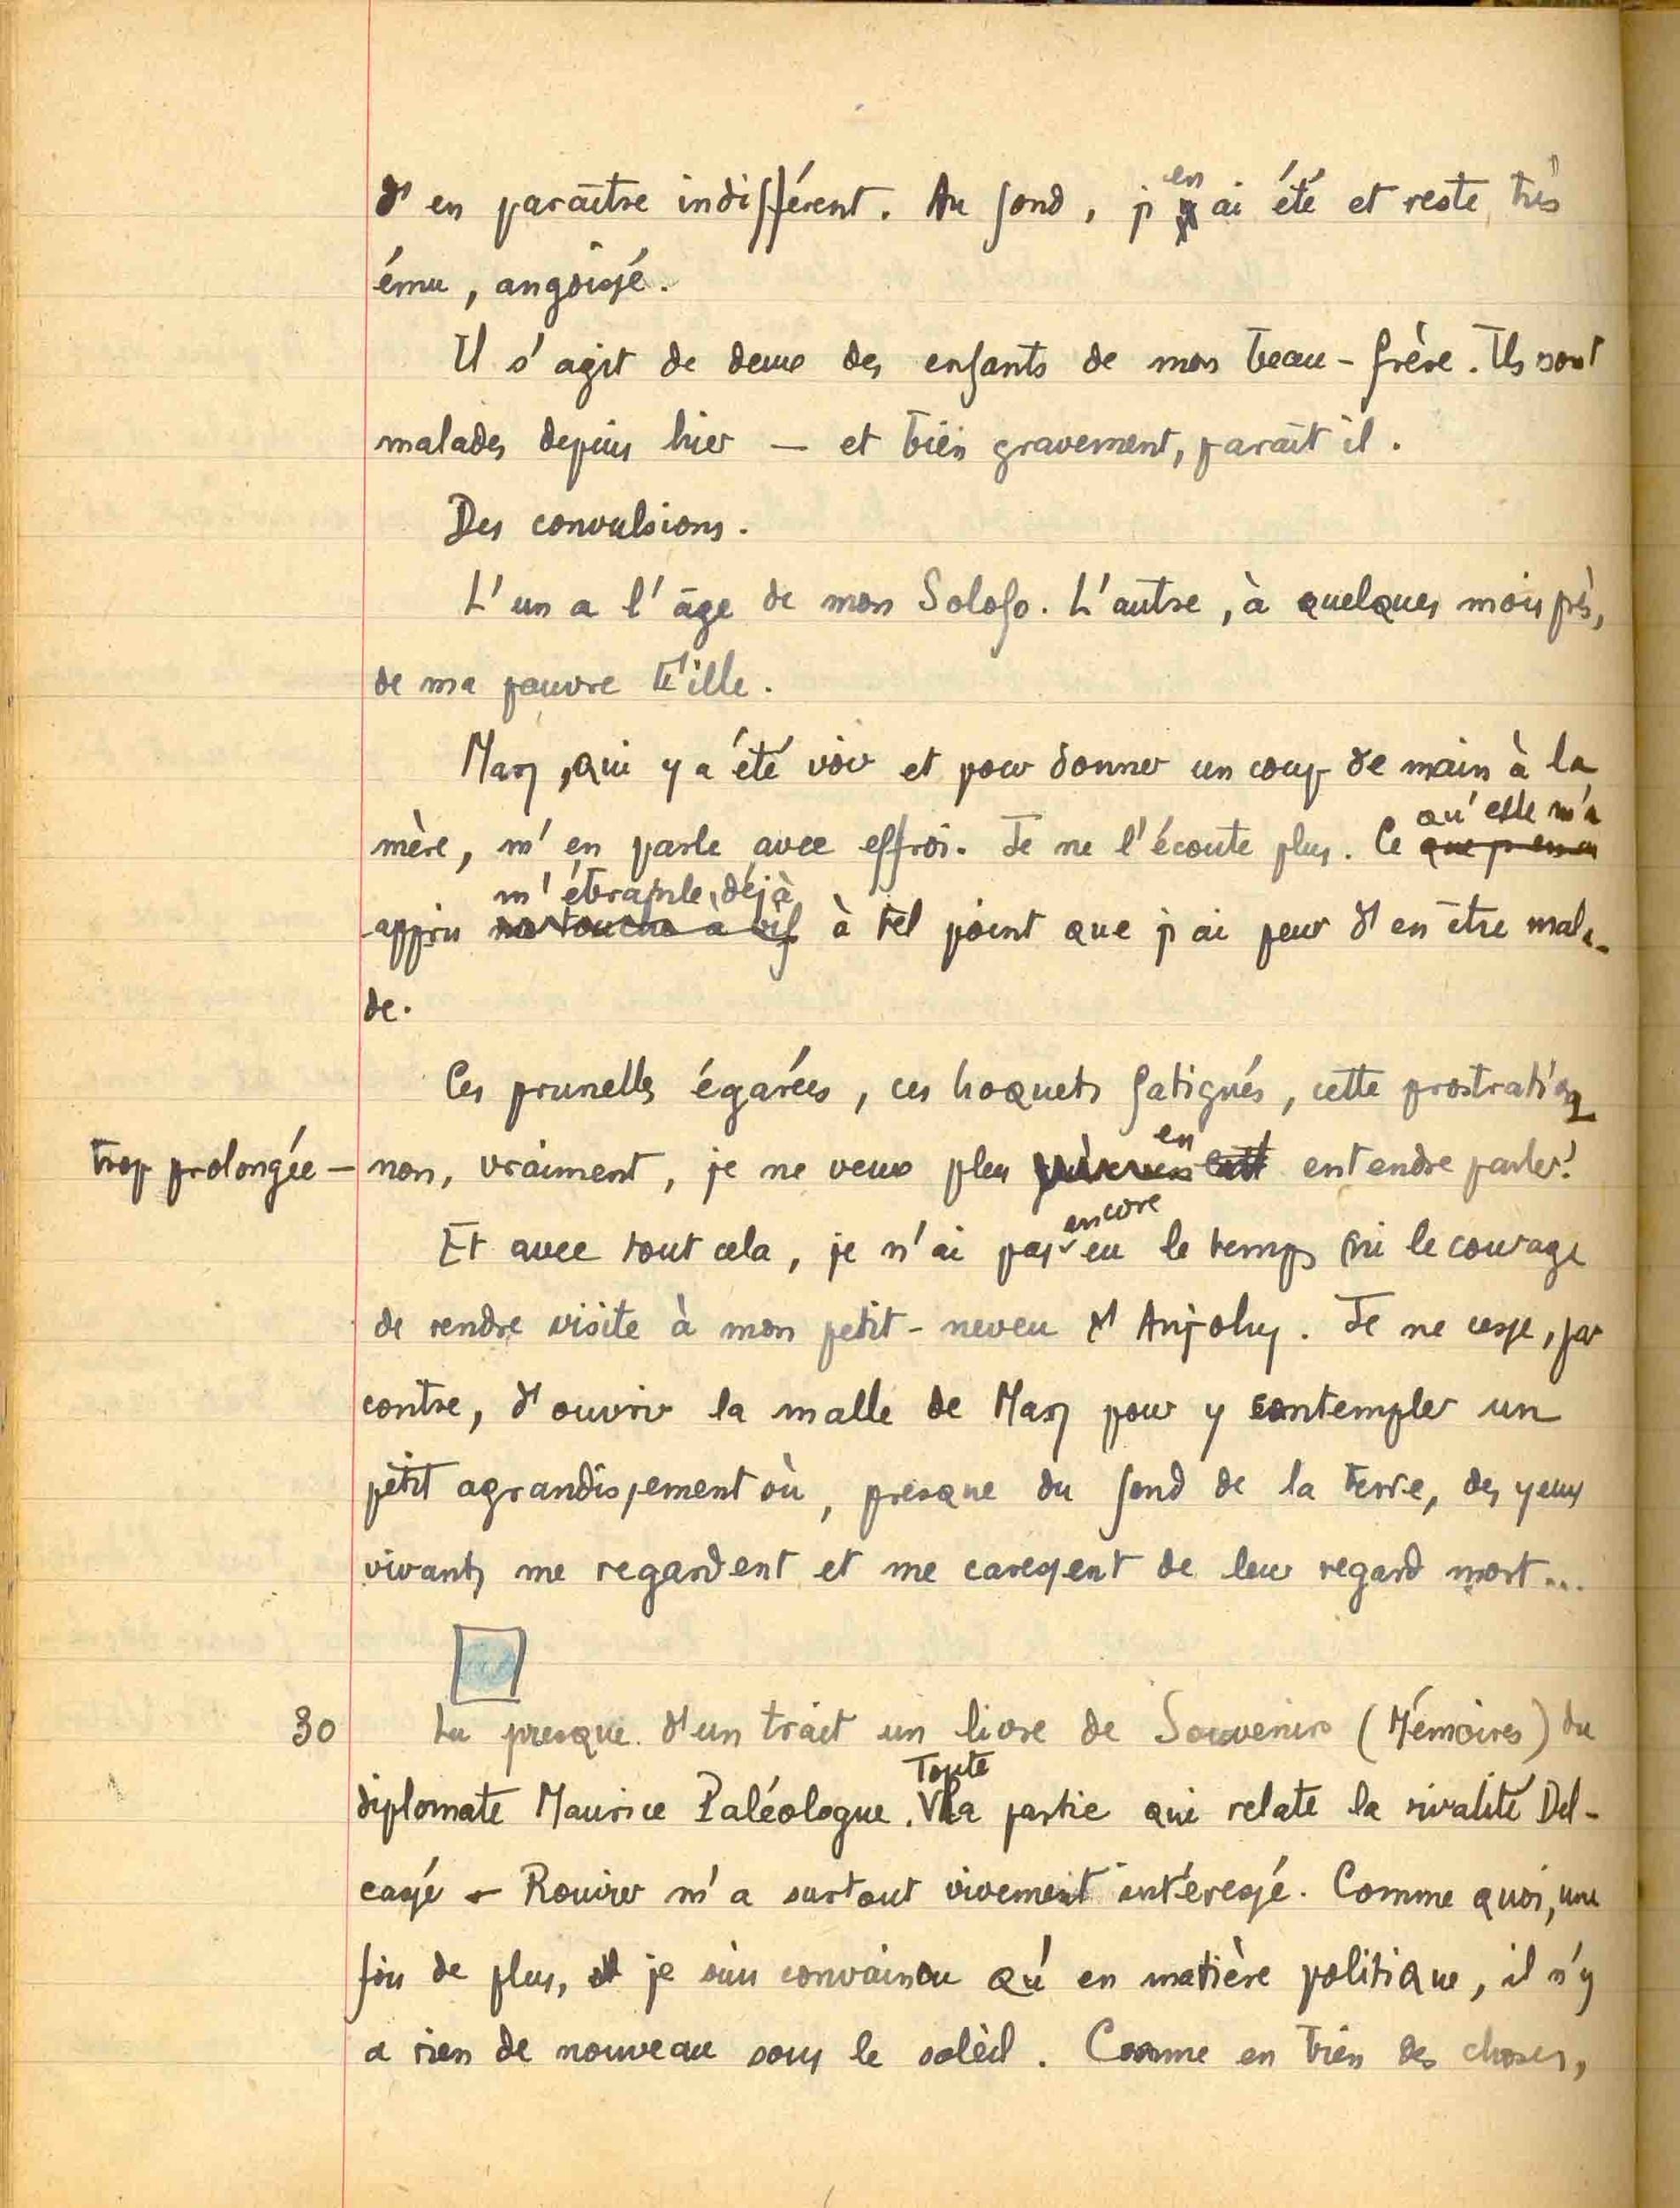 d'en paraître indifférent. Au fond, j'en ai été et reste très
ému, angoissé.
Il s'agit de deux des enfants de mon beau-frère. Ils sont
malades depuis hier — et bien gravement, paraît il.
Des convulsions.
L'un a l'âge de mon Solofo. L'autre, à quelques mois près,
de ma pauvre Fille.
Mary, qui y a été voir et pour donner un coup de main à la
mère, m'en parle avec effroi. Je ne l'écoute plus. Ce qu'elle m'a
appris m'ébranle, déjà, à tel point que j'ai peur d'en être mala-
de.
Ces prunelles égarées, ces hoquets fatigués, cette prostration
trop prolongée — non, vraiment, je ne veux plus en entendre parler!
Et avec tout cela, je n'ai pas encore eu le temps ni le courage
de rendre visite à mon petit-neveu d'Anjohy. Je ne cesse, par
contre, d'ouvrir la malle de Mary pour y contempler un
petit agrandissement où, presque du fond de la terre, des yeux
vivants me regardent et me caressent de leur regard mort...
30 Lu presque d'un trait un livre de Souvenirs (Mémoires) du
diplomate Maurice Paléologue. Toute la partie qui relate la rivalité Del-
cassé - Rouvier m'a surtout vivement intéressé. Comme quoi, une
fois de plus, je suis convaincu qu'en matière politique, il n'y
a rien de nouveau sous le soleil. Comme en bien des choses,